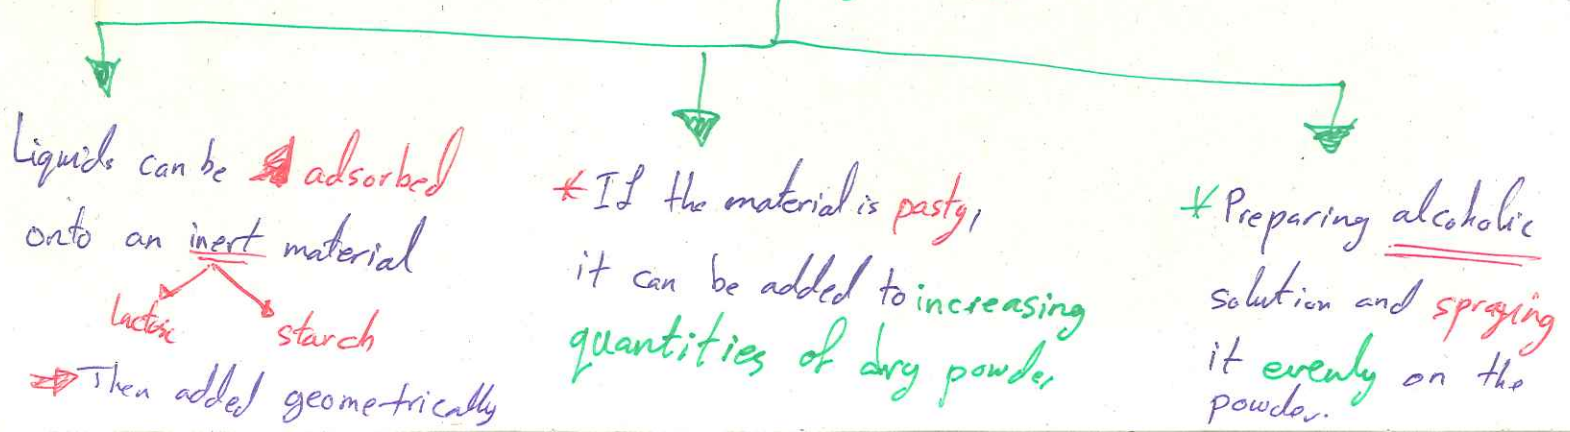 Liquids can be adsorbed
onto an inert material
lactose
starch
Then added geometrically
* If the material is pasty,
it can be added to increasing
quantities of dry powder
* Preparing alcoholic
solution and spraying
it evenly on the
powder.